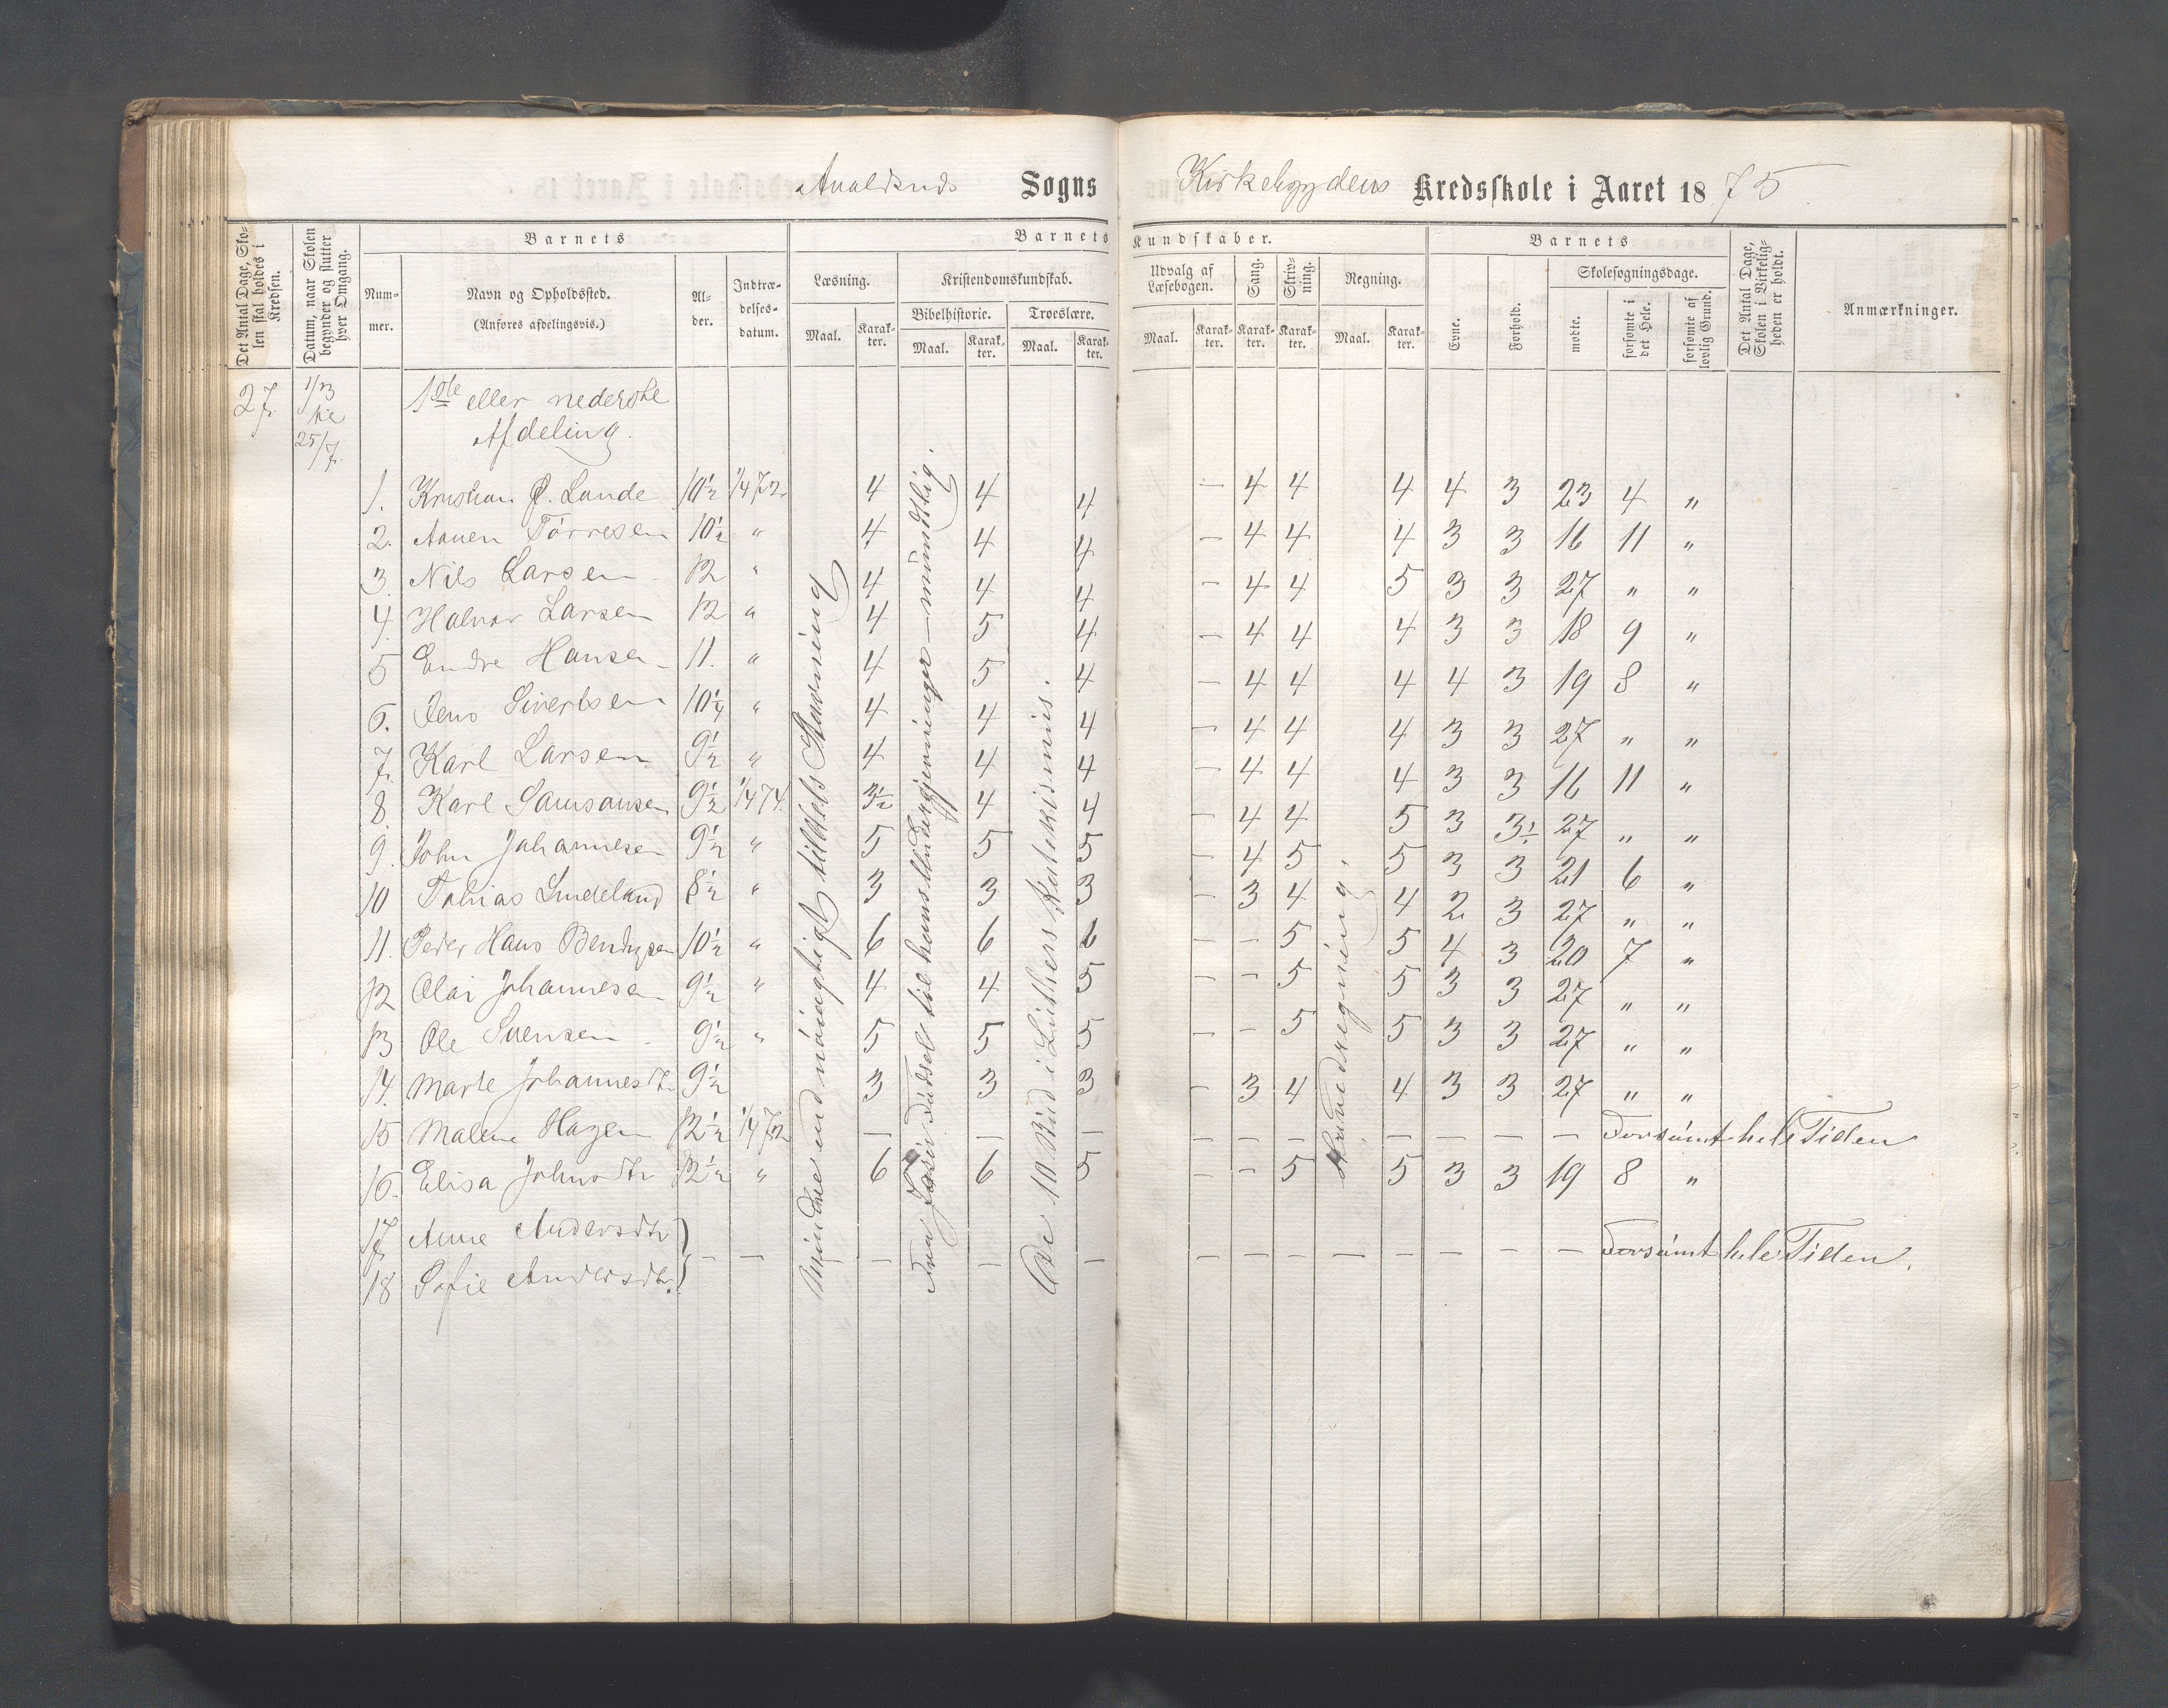 Avaldsnds Sogns Kirkebygdens Kredsskole i Aaret 1875
Det Antal Dage, Skolen skal holdes i Kredsen.
Datum, naar Skolen begynder og slutter hver Omgang.
Barnets
Nummer.
Navn og Opholdssted.
(Anføres afdelingsvis.)
Alder.
Indtrædelsesdatum.
Barnets Kundskaber.
Læsning.
Maal. Karakter.
Kristendomskundskab.
Bibelhistorie. Troeslære.
Maal. Karakter. Maal. Karakter.
Udvalg af Læsebogen.
Maal. Karakter.
Sang. Karakter.
Skrivning. Karakter.
Regning.
Maal. Karakter.
Barnets
Evne. Forhold.
Skolesøgningsdage.
mødte. forsømte i det Hele. forsømte af lovlig Grund.
Det Antal Dage, Skolen i Virkeligheden er holdt.
Anmærkninger.
27. 1/13 til 25/7. 1ste eller nederste
Afdeling.
1. Kristian P. Lande 10½ 1/4 72. 4 4 4 - 4 4 4 4 3 23 4 "
2. Aanen Tørresen 10½ " 4 4 4 - 4 4 4 3 3 16 11 "
3. Nils Larsen 12 " 4 4 4 - 4 4 5 3 3 27 " "
4. Halvor Larsen 12 " 4 5 4 - 4 4 4 3 3 18 9 "
5 Endre Hansen 11. " 4 5 4 - 4 4 4 4 3 19 8 "
6. Jens Sivertsen 10¼ " 4 4 4 - 4 4 4 3 3 27 " "
7. Karl Larsen 9½ " 4 4 4 - 4 4 4 3 3 16 11 "
8 Karl Samsonsen 9½ 1/4 74. 3½ 4 4 - 4 4 5 3 3½ 27 " "
9. John Johannesen 9½ " 5 5 5 - 4 5 5 3 3 21 6 "
10 Tobias Lindeland 8½ " 3 3 3 - 3 4 4 2 3 27 " "
11. Peder Hans Bendixsen 10½ " 6 6 6 - - 5 5 4 3 20 7 "
12 Olai Johannesen 9½ " 4 4 5 - - 5 5 3 3 27 " "
13 Ole Svensen 9½ " 5 5 5 - - 5 5 3 3 27 " "
14. Marte Johannesdtr 9½ 3 3 3 - 3 4 4 3 3 27 " "
15 Malene Hagen 12½ 1/4 72 - - - - - - - - - - Forsømt hele Tiden
16. Elisa Johnsdtr 12½ " 6 6 5 - - 5 5 3 3 19 8 "
17 Anne Andersdtr
18 Sofie Andersdtr. - - - - - - - - - - - - - Forsømt hele Tiden.
Mindre end nöiagtigt tildels Stavning
Fra Jesu Fødsel til hans Undergjerninger - mundtlig.
De 10 Bud i Luthers Katekismus.
Haandregning.